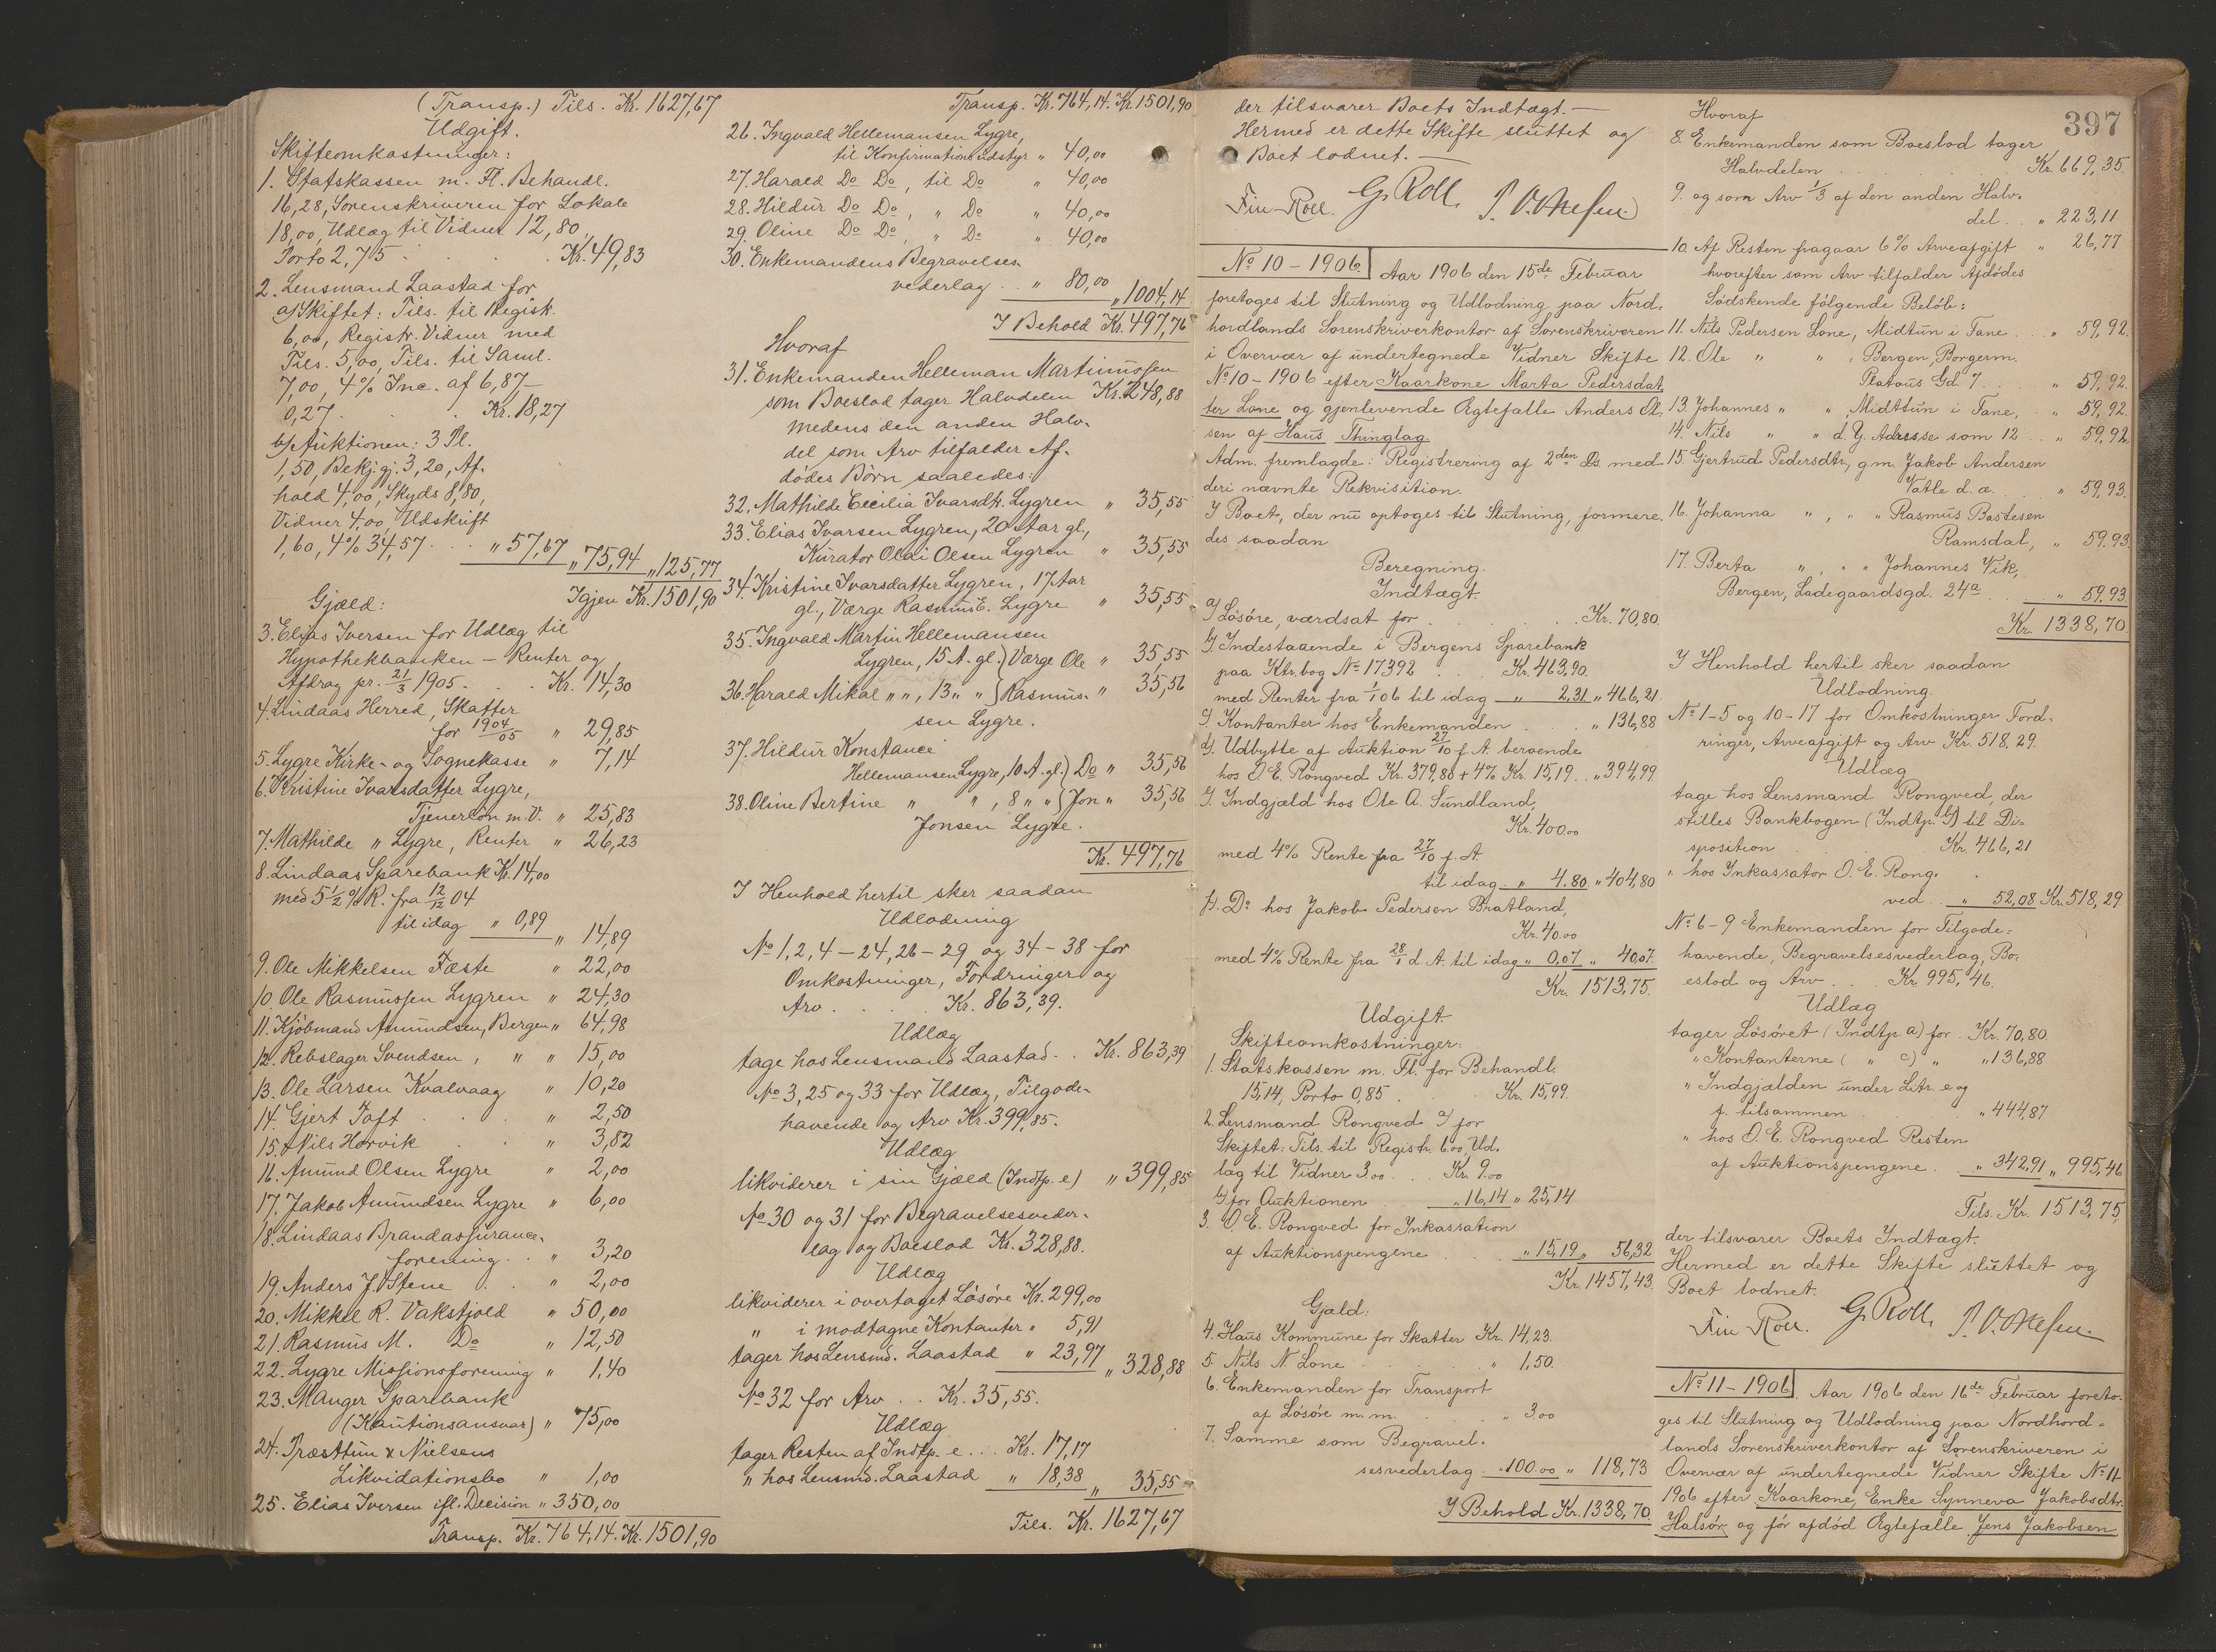 (Transp.) Tils. Kr. 1627,67
Udgift.
Skifteomkostninger:
1. Statskassen m. Fl. Behandl.
16,28, Sorenskriveren for Lokale
18,00, Udlæg til Vidner 12,80,
Porto 2,75 . . . Kr. 49,83
2. Lensmand Laastad for
a/ Skiftet: Tils. til Registr.
6,00, Registr. Vidner med
Tils. 5,00, Tils. til Saml.
7,00, 4% Inc. af 6,87 –
0,27 . . . Kr. 18,27
b/ Auktionen: 3 Pl.
1,50, Bekj.gj. 3,20, Af-
hold 4,00, Skyds 8,80,
Vidner 4,00, Udskrift
1,60, 4% 34,57 . . . „ 57,67 „ 75,94 „ 125,77
Igjen Kr. 1501,90
Gjæld:
3. Elias Iversen for Udlæg til
Hypothekbanken – Renter og
Afdrag pr. 21/3 1905 . . Kr. 14,30
4. Lindaas Herred, Skatter
for 1904/05 „ 29,85
5. Lygre Kirke- og Sognekasse „ 7,14
6. Kristine Ivarsdatter Lygre,
Tjenerløn m.V. „ 25,83
7. Mathilde „ Lygre, Renter „ 26,23
8. Lindaas Sparebank Kr. 14,00
med 5 1/2 % R. fra 12/12 04
til idag „ 0,89 „ 14,89
9. Ole Mikkelsen Fæste „ 22,00
10. Ole Rasmussen Lygren „ 24,30
11. Kjøbmand Amundsen, Bergen „ 64,98
12. Rebslager Svendsen, „ „ 15,00
13. Ole Larsen Kvalvaag „ 10,20
14. Gjert Toft . . „ 2,50
15. Nils Horvik . . „ 3,82
16. Amund Olsen Lygre „ 2,00
17. Jakob Amundsen Lygre „ 6,00
18. Lindaas Brandassurance-
forening . . „ 3,20
19. Anders J. Stene . . „ 2,00
20. Mikkel R. Vakstjold „ 50,00
21. Rasmus M. Do „ 12,50
22. Lygre Missionsforening „ 1,40
23. Manger Sparebank
(Kautionsansvar) „ 75,00
24. Præsttun & Nielsens
Likvidationsbo „ 1,00
25. Elias Iversen ifl. Decision „ 350,00
Transp. Kr. 764,14. Kr. 1501,90
Transp. Kr. 764,14. Kr. 1501,90
26. Ingvald Hellemansen Lygre,
til Konfirmationsudstyr „ 40,00
27. Harald Do Do, til Do „ 40,00
28. Hildur Do Do, „ Do „ 40,00
29. Oline Do Do, „ Do „ 40,00
30. Enkemandens Begravelses-
vederlag . . „ 80,00 „ 1004,14
I Behold Kr. 497,76
Hvoraf
31. Enkemanden Helleman Martinussen
som Boeslod tager Halvdelen Kr. 248,88
medens den anden Halv-
del som Arv tilfalder Af-
dødes Børn saaledes:
32. Mathilde Cecilia Ivarsdtr. Lygren „ 35,55
33. Elias Ivarsen Lygren, 20 Aar gl.,
Kurator Oldi Olsen Lygren „ 35,55
34. Kristine Ivarsdatter Lygren, 17 Aar
gl., Værge Rasmus E. Lygre „ 35,55
35. Ingvald Martin Hellemansen
Lygren, 15 A. gl.) Værge Ole „ 35,55
36. Harald Mikal „ „, 13 „ „ } Rasmus- „ 35,56
sen Lygre.
37. Hildur Konstance
Hellemansen Lygre, 10 A. gl.) Do „ 35,56
38. Oline Bertine „ „, 8 „ „ } Jon „ 35,56
Jonsen Lygre.
Kr. 497,76
I Henhold hertil sker saadan
Udlodning
No 1, 2, 4 – 24, 26 – 29 og 34 – 38 for
Omkostninger, Fordringer og
Arv . . . Kr. 863,39.
Udlæg
tage hos Lensmand Laastad . . Kr. 863,39
No 3, 25 og 33 for Udlæg, Tilgode-
havende og Arv Kr. 399,85.
Udlæg
likviderer i sin Gjæld (Indtp. e) „ 399,85
No 30 og 31 for Begravelsesveder-
lag og Boeslod Kr. 328,88.
Udlæg
likviderer i overtaget Løsøre Kr. 299,00
„ i modtagne Kontanter „ 5,91
tager hos Lensmd. Laastad „ 23,97 „ 328,88
No 32 for Arv . . Kr. 35,55.
Udlæg
tager Resten af Indtp. e . . Kr. 17,17
„ hos Lensmd. Laastad „ 18,38 „ 35,55
Tils. Kr. 1627,67
der tilsvarer Boets Indtægt. –
Hermed er dette Skifte sluttet og
Boet lodnet. –
Fin Roll. G. Roll.
No 10 – 1906 Aar 1906 den 15de Februar
foretoges til Slutning og Udlodning paa Nord-
hordlands Sorenskriverkontor af Sorenskriveren
i Overvær af undertegnede Vidner Skifte
No 10 – 1906 efter Kaarkone Marta Pedersdat-
ter Lone og gjenlevende Ægtefælle Anders Ol-
sen af Haus Thinglag.
Adm. fremlagde: Registrering af 2den Ds. med
deri nævnte Rekvisition.
I Boet, der nu optoges til Slutning, formere-
des saadan
Beregning.
Indtægt.
a/ Løsøre, værdsat for . . . Kr. 70,80.
b/ Indestaaende i Bergens Sparebank
paa Ktr.bog No 17392 . . Kr. 463,90.
med Renter fra 1/1 06 til idag „ 2,31 „ 466,21
c/ Kontanter hos Enkemanden . . „ 136,88
d/ Udbytte af Auktion 27/10 f. A. beroende
hos O E. Rongved Kr. 379,80 + 4% Kr. 15,19 . . „ 394,99
e/ Indgjæld hos Ole A. Sundland,
Kr. 400.00
med 4% Rente fra 27/10 f. A.
til idag „ 4.80 „ 404,80
f/ Do hos Jakob Pedersen Bratland,
Kr. 40.00
med 4% Rente fra 28/1 d A. til idag „ 0,07 „ 40,07.
Kr. 1513,75.
Udgift.
Skifteomkostninger:
1. Statskassen m. Fl. for Behandl.
15,14, Porto 0,85 . . Kr. 15,99.
2. Lensmand Rongved a/ for
Skiftet: Tils. til Registr. 6.00, Ud-
læg til Vidner 3.00 . . . Kr. 9.00
b/ for Auktionen . . „ 16,14 „ 25,14
3. O E. Rongved for Inkassation
af Auktionspengene . . „ 15,19 „ 56,32
Kr. 1457,43.
Gjæld:
4. Haus Kommune for Skatter Kr. 14,23.
5. Nils N. Lone . . . „ 1,50.
6. Enkemanden for Transport
af Løsøre m. m. . . „ 3.00
7. Samme som Begravel-
sesvederlag „ 100.00 „ 118,73
I Behold Kr. 1338,70.
397
Hvoraf
8. Enkemanden som Boeslod tager
Halvdelen . . . Kr. 669,35.
9. og som Arv 1/3 af den anden Halv-
del . . „ 223,11
10. Af Resten fragaar 6% Arveafgift „ 26,77
hvorefter som Arv tilfalder Afdødes
Sødskende følgende Beløb:
11. Nils Pedersen Lone, Midtun i Fane . . „ 59,92.
12. Ole „ „, Bergen, Borgerm.
Platous Gd. 7 . . „ 59,92.
13. Johannes „ „, Midttun i Fane, . „ 59,92.
14. Nils „ „ d. Y. Adresse som 12 . . „ 59,92.
15. Gjertrud Pedersdtr., g.m. Jakob Andersen
Vatle d. æ. . . „ 59,93.
16. Johanna „, „ „ Rasmus Bastesen
Ramsdal, „ 59.93.
17. Berta „, „ „ Johannes Vik,
Bergen, Ladegaardsgd. 24a . . „ 59,93.
Kr. 1338,70.
I Henhold hertil sker saadan
Udlodning.
No 1-5 og 10-17 for Omkostninger Ford-
ringer, Arveafgift og Arv Kr. 518.29.
Udlæg
tage hos Lensmand Rongved, der
stilles Bankbogen (Indtp. b/) til Di-
sposition . . Kr. 466,21
„ hos Inkassator O. E. Rong-
ved . . „ 52,08 Kr. 518,29
No 6-9 Enkemanden for Tilgode-
havende, Begravelsesvederlag, Bo-
eslod og Arv . . Kr. 995,46.
Udlæg
tager Løsøret (Indtp. a) for . Kr. 70,80.
„ Kontanterne ( „ c) „ „ 136,88
„ Indgjælden under Litr. e og
f. tilsammen . . „ 444,87
„ hos O. E. Rongved Resten
af Auktionspengene . . „ 342,91 „ 995,46
Tils. Kr. 1513,75,
der tilsvarer Boets Indtægt.
Hermed er dette Skifte sluttet og
Boet lodnet.
Fin Roll. G. Roll.
No 11 – 1906 Aar 1906 den 16de Februar foreto-
ges til Slutning og Udlodning paa Nordhord-
lands Sorenskriverkontor af Sorenskriveren i
Overvær af undertegnede Vidner Skifte No 11
1906 efter Kaarkone, Enke Synneva Jakobsdtr.
Halsør og før afdød Ægtefælle Jens Jakobsen